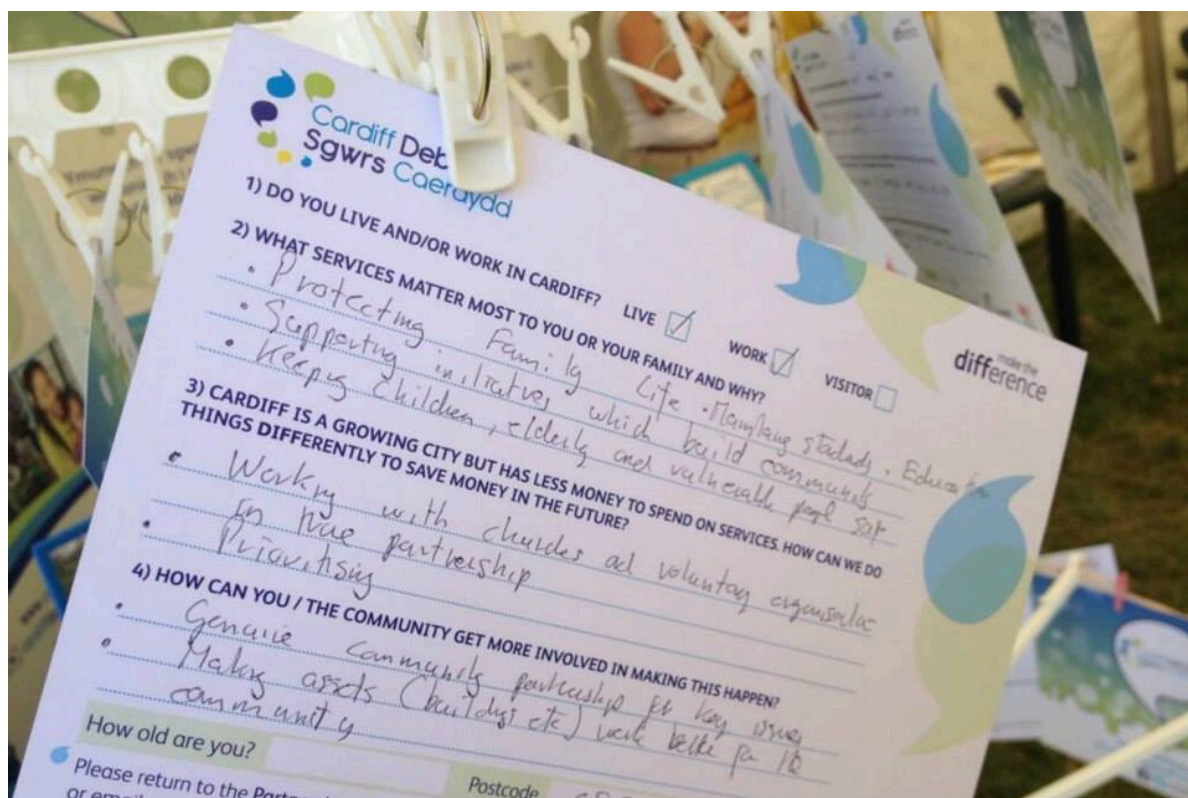 Cardiff Deb
Sgwrs Caerdydd
make the
difference
1) DO YOU LIVE AND/OR WORK IN CARDIFF? LIVE WORK VISITOR
2) WHAT SERVICES MATTER MOST TO YOU OR YOUR FAMILY AND WHY?
• Protecting Family Life •
• Supporting initiatives which build community
• Keeping children, elderly and vulnerable
3) CARDIFF IS A GROWING CITY BUT HAS LESS MONEY TO SPEND ON SERVICES. HOW CAN WE DO
THINGS DIFFERENTLY TO SAVE MONEY IN THE FUTURE?
• Working with churches and voluntary
in true partnership
• Prioritising
4) HOW CAN YOU / THE COMMUNITY GET MORE INVOLVED IN MAKING THIS HAPPEN?
• Genuine community partnership for key issues
• Making assets (buildings etc) work better for
community
How old are you?
Postcode
Please return to the
or email